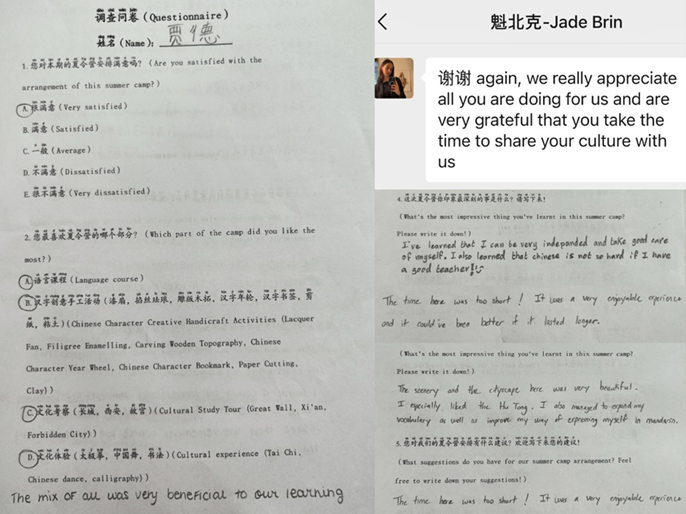 调查问卷(Questionnaire)
姓名(Name): 贾德
1. 您对本期的夏令营安排满意吗?(Are you satisfied with the
arrangement of this summer camp?)
A. 很满意(Very satisfied)
B. 满意(Satisfied)
C. 一般(Average)
D. 不满意(Dissatisfied)
E. 很不满意(Very dissatisfied)
2. 您最喜欢夏令营的哪个部分?(Which part of the camp did you like the
most?)
A. 语言课程(Language course)
B. 汉字创意手工活动(漆扇, 掐丝珐琅, 雕版木拓, 汉字年轮, 汉字书签, 剪
纸, 黏土)(Chinese Character Creative Handicraft Activities (Lacquer
Fan, Filigree Enamelling, Carving Wooden Topography, Chinese
Character Year Wheel, Chinese Character Bookmark, Paper Cutting,
Clay))
C. 文化考察(长城, 西安, 故宫)(Cultural Study Tour (Great Wall, Xi'an,
Forbidden City))
D. 文化体验(太极拳, 中国舞, 书法)(Cultural experience (Tai Chi,
Chinese dance, calligraphy))
The mix of all was very beneficial to our learning
魁北克-Jade Brin
谢谢 again, we really appreciate
all you are doing for us and are
very grateful that you take the
time to share your culture with
us
4. 这次夏令营你印象最深刻的事是什么?请写下来!
(What's the most impressive thing you've learnt in this summer camp?
Please write it down!)
I've learned that I can be very independed and take good care
of myself. I also learned that chinese is not so hard if I have
a good teacher!
The time here was too short! It was a very enjoyable experience
and it could've been better if it lasted longer.
(What's the most impressive thing you've learnt in this summer camp?
Please write it down!)
The scenery and the cityscape here was very beautiful.
I especially liked the Hu Tong. I also managed to expand my
vocabulary as well as improve my way of expressing myself in mandarin.
5. 您对我们的夏令营安排有什么建议?欢迎写下来您的建议!
(What suggestions do you have for our summer camp arrangement? Feel
free to write down your suggestions!)
The time here was too short! It was a very enjoyable experience